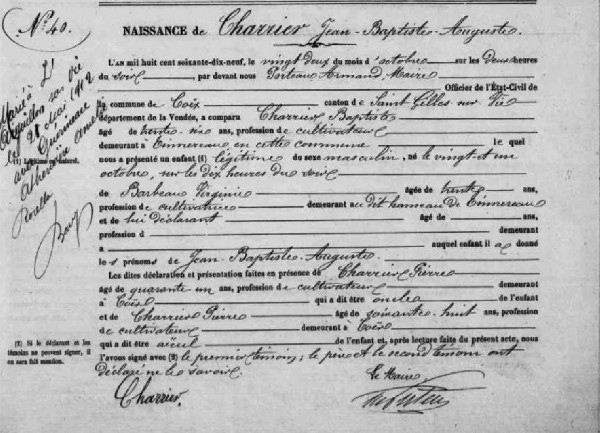 N° 40.
NAISSANCE de Charrier Jean-Baptiste-Auguste.
L'AN mil huit cent soixante-dix-neuf, le vingt deux du mois d'octobre sur les deux heures
du soir par devant nous Porteau Armand Maire
Officier de l'État-Civil de
la commune de Coëx canton de Saint Gilles sur Vie
département de la Vendée, a comparu Charrier Baptiste
âgé de trente six ans, profession de cultivateur
demeurant à Einnereau en cette commune le quel
nous a présenté un enfant (1) légitime du sexe masculin, né le vingt et un
octobre, sur les dix heures du soir
de Barbeau Virginie âgée de trente ans,
profession de cultivatrice demeurant au dit hameau de Einnereau
et de lui déclarant âgé de ans,
profession d demeurant
à auquel enfant il a donné
les prénoms de Jean-Baptiste-Auguste.
Les dites déclaration et présentation faites en présence de Charrier Pierre
âgé de quarante un ans, profession de cultivateur demeurant
à Coëx qui a dit être oncle de l'enfant
et de Charrier Pierre âgé de soixante huit ans, profession
de cultivateur demeurant à Coëx
qui a dit être aïeul de l'enfant et, après lecture faite du présent acte, nous
l'avons signé avec (2) le premier témoin; le père et le second témoin ont
déclaré ne le savoir.
Le Maire
Charrier.
Marié à L'
Aiguillon sur Vie
le 28 mai 1912
avec
(1) Légitime ou naturel.
(2) Si le déclarant et les
témoins ne peuvent signer, il
en sera fait mention.